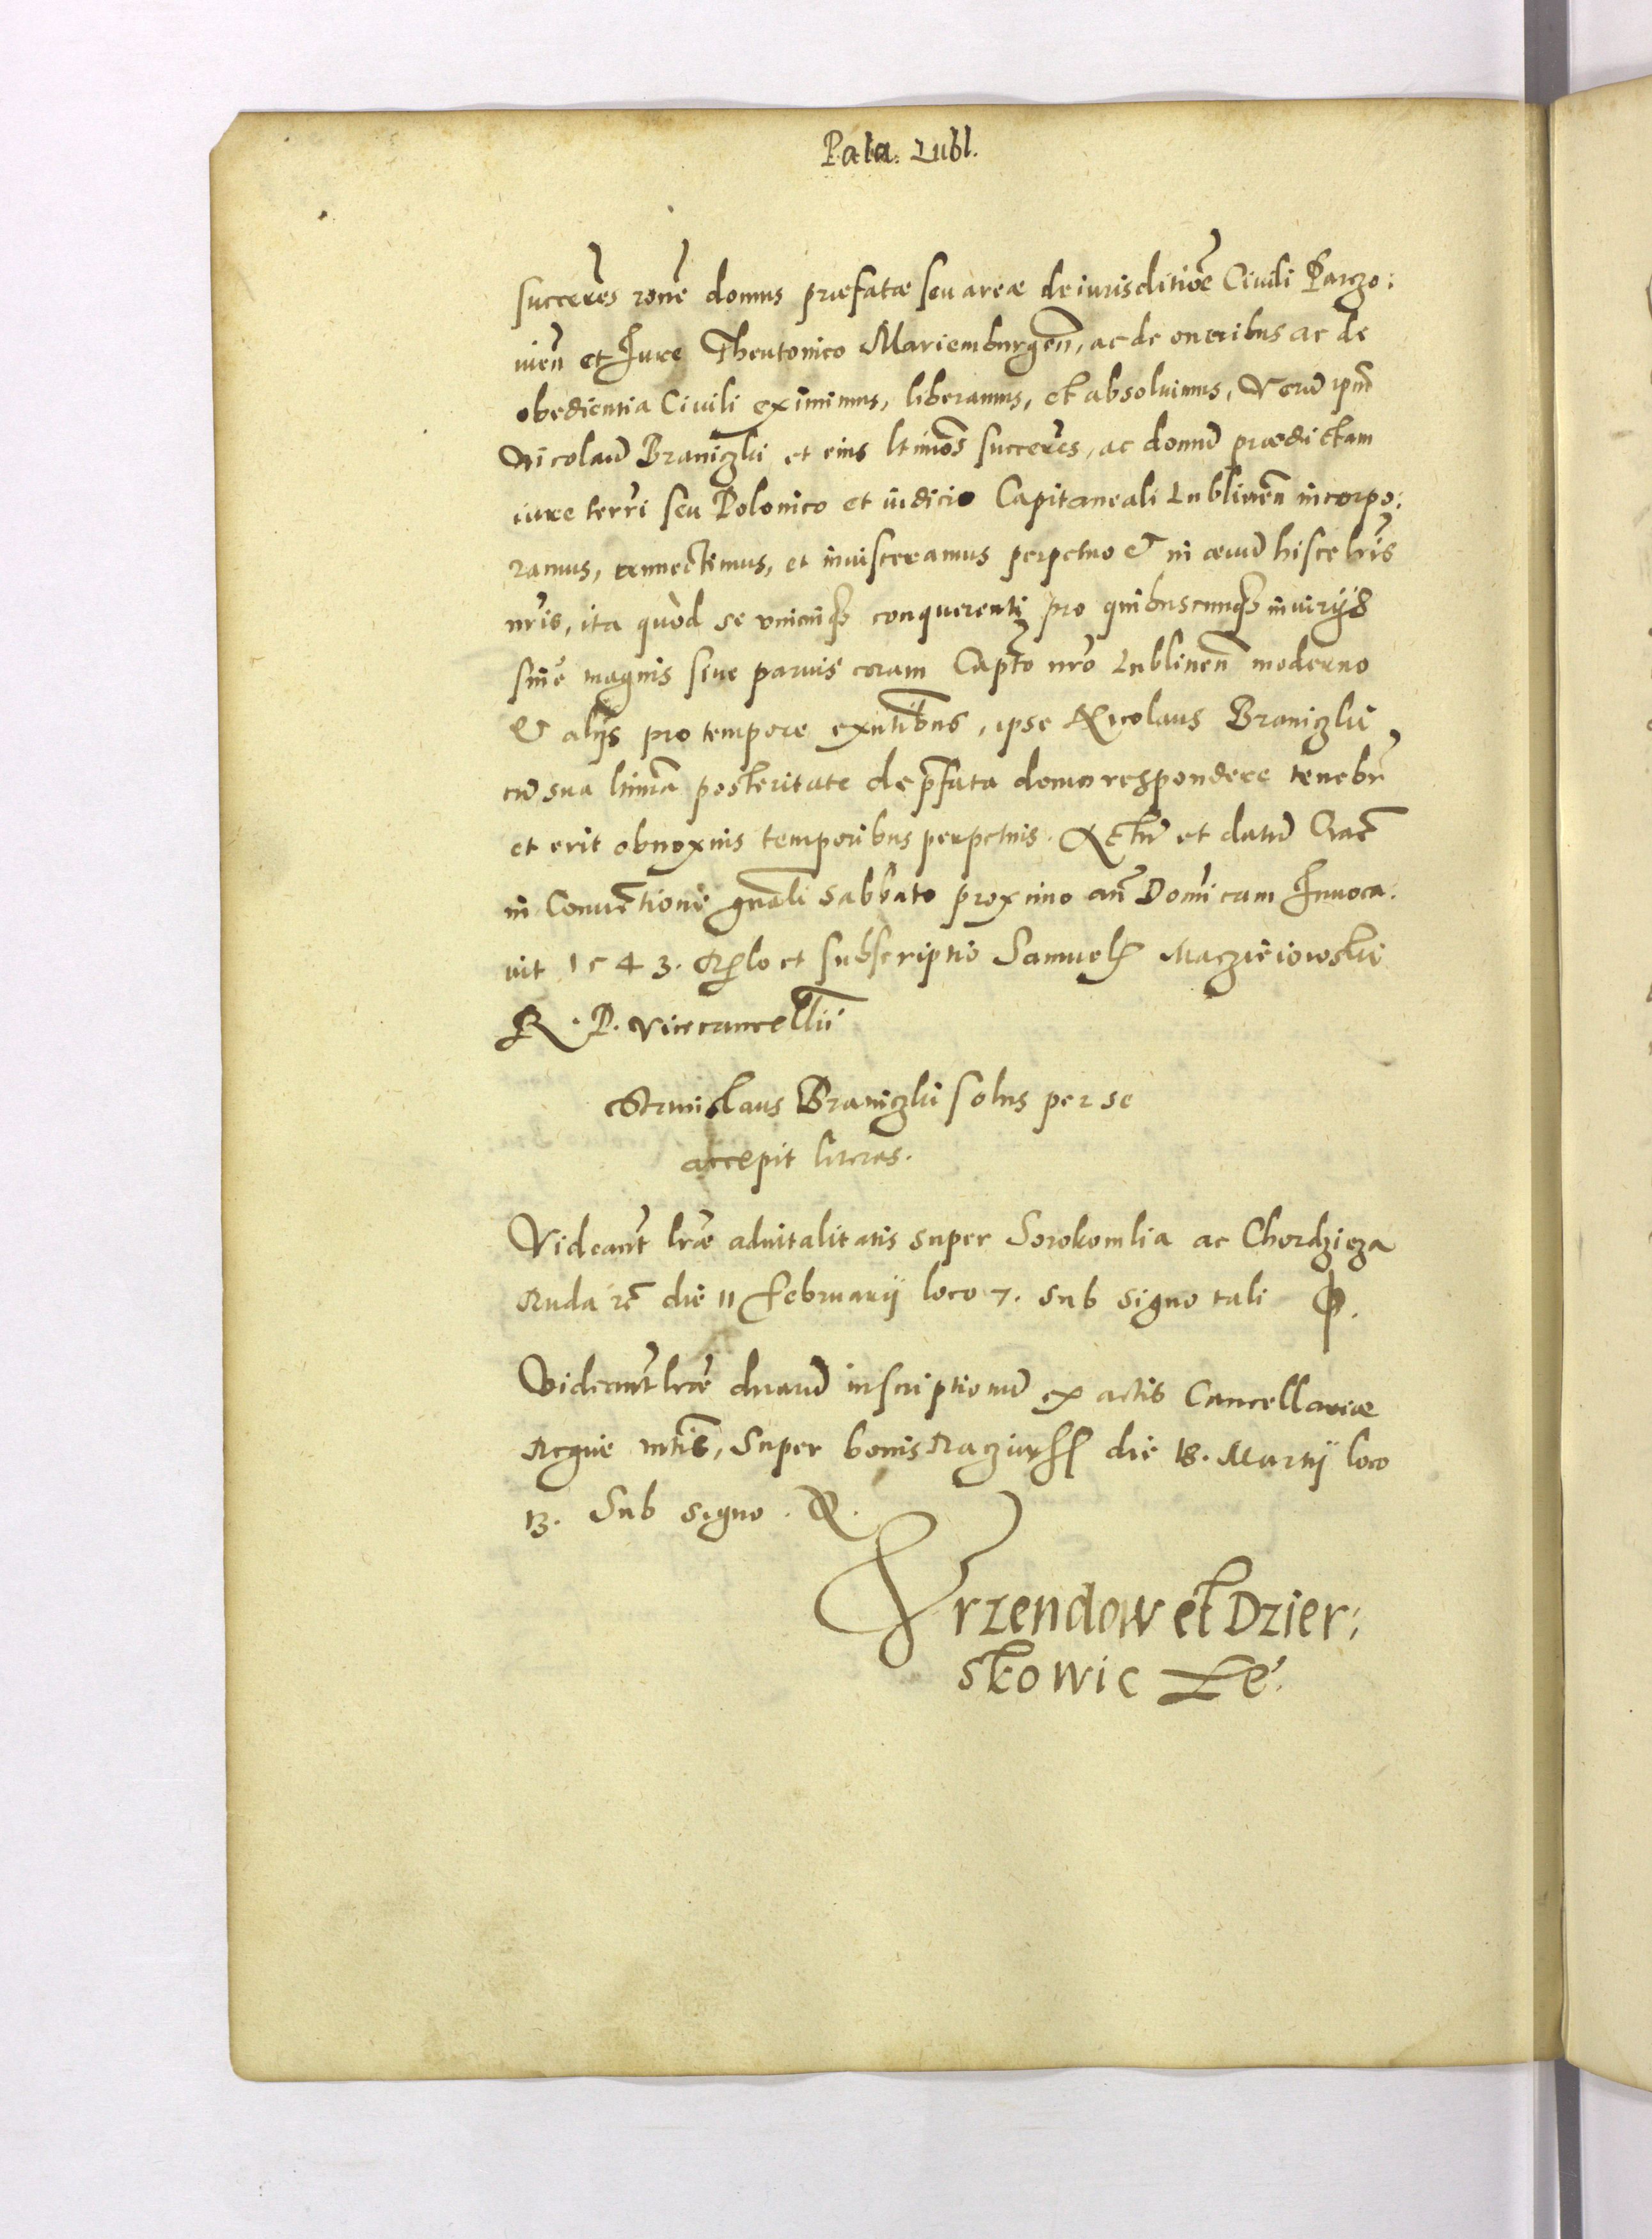 Pala. Lubl.
succeres rone domus præfatæ seu areæ de iurisditioe Ciuili Parczo:
uien et Iure Theutonico Mariemburgen, ac de oneribus ac de
obedientia Ciuili eximimus, liberamus, et absoluimus, Verũ ipm
Nicolaũ Braniczki et eius ltimos succeres, ac domũ prædictam
iure terri seu Polonico et iudicio Capitaneali Lublinen incorpo:
ramus, annectimus, et inuisceramus perpetuo & in æuũ hisce lris
nris, ita quod se vnicuiq3 conquerenti pro quibuscunq3 iniurijs
siue magnis siue paruis coram Capto nro Lublinen moderno
& alijs pro tempore exntibus, ipse Nicolaus Braniczki
cũ sua ltima posteritate de pfata domo respondere tenebr
et erit obnoxius temporibus perpetuis. Actũ et datũ Crac
in Conuentione gnali Sabbato proximo an Domicam Inuoca:
uit 1543. Rlo et subscriptio Samuelis Macziéiowski
R. P. Vicecancellii
Stanislaus Braniczki solus per se
accepit literas.
Videant lræ aduitalitatis super Sorokomlia ac Chordzieza
Ruda rc die 11 february loco 7. sub signo tali ф.
Videant lræ duarũ inscriptionũ ex actis Cancellariæ
Regiæ mtis, Super bonis die 18. Martij loco
13. Sub signo.
Vrzendow et Dzier:
skowic Lé.